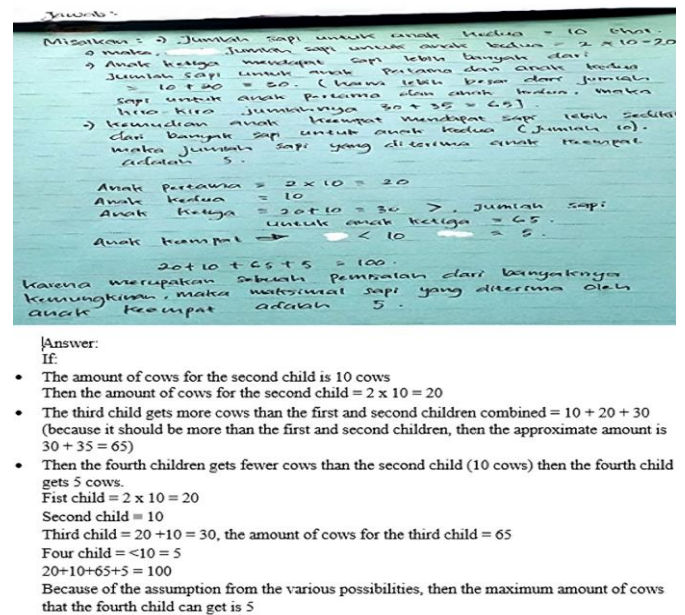 Jawab :
Misalkan : → Jumlah sapi untuk anak kedua = 10 ekor.
→ maka, Jumlah sapi untuk anak kedua = 2 x 10 = 20
→ Anak ketiga mendapat sapi lebih banyak dari
Jumlah sapi untuk anak Pertama dan anak kedua
= 10 + 20 = 30. ( harus lebih besar dari jumlah
sapi untuk anak pertama dan anak kedua. maka
kira-kira jumlahnya 30 + 35 = 65).
→ kemudian anak keempat mendapat sapi lebih sedikit
dari banyak sapi untuk anak kedua ( Jumlah 10).
maka jumlah sapi yang diterima anak keempat
adalah 5.
Anak Pertama = 2 x 10 = 20
Anak kedua = 10
Anak ketiga = 20 + 10 = 30 >, Jumlah sapi
untuk anak ketiga = 65.
Anak keempat → < 10 = 5.
20 + 10 + 65 + 5 = 100.
karena merupakan sebuah pemisalan dari banyaknya
kemungkinan, maka maksimal sapi yang diterima oleh
anak keempat adalah 5.
Answer:
If:
• The amount of cows for the second child is 10 cows
Then the amount of cows for the second child = 2 x 10 = 20
• The third child gets more cows than the first and second children combined = 10 + 20 + 30
(because it should be more than the first and second children, then the approximate amount is
30 + 35 = 65)
• Then the fourth children gets fewer cows than the second child (10 cows) then the fourth child
gets 5 cows.
Fist child = 2 x 10 = 20
Second child = 10
Third child = 20 +10 = 30, the amount of cows for the third child = 65
Four child = <10 = 5
20+10+65+5 = 100
Because of the assumption from the various possibilities, then the maximum amount of cows
that the fourth child can get is 5